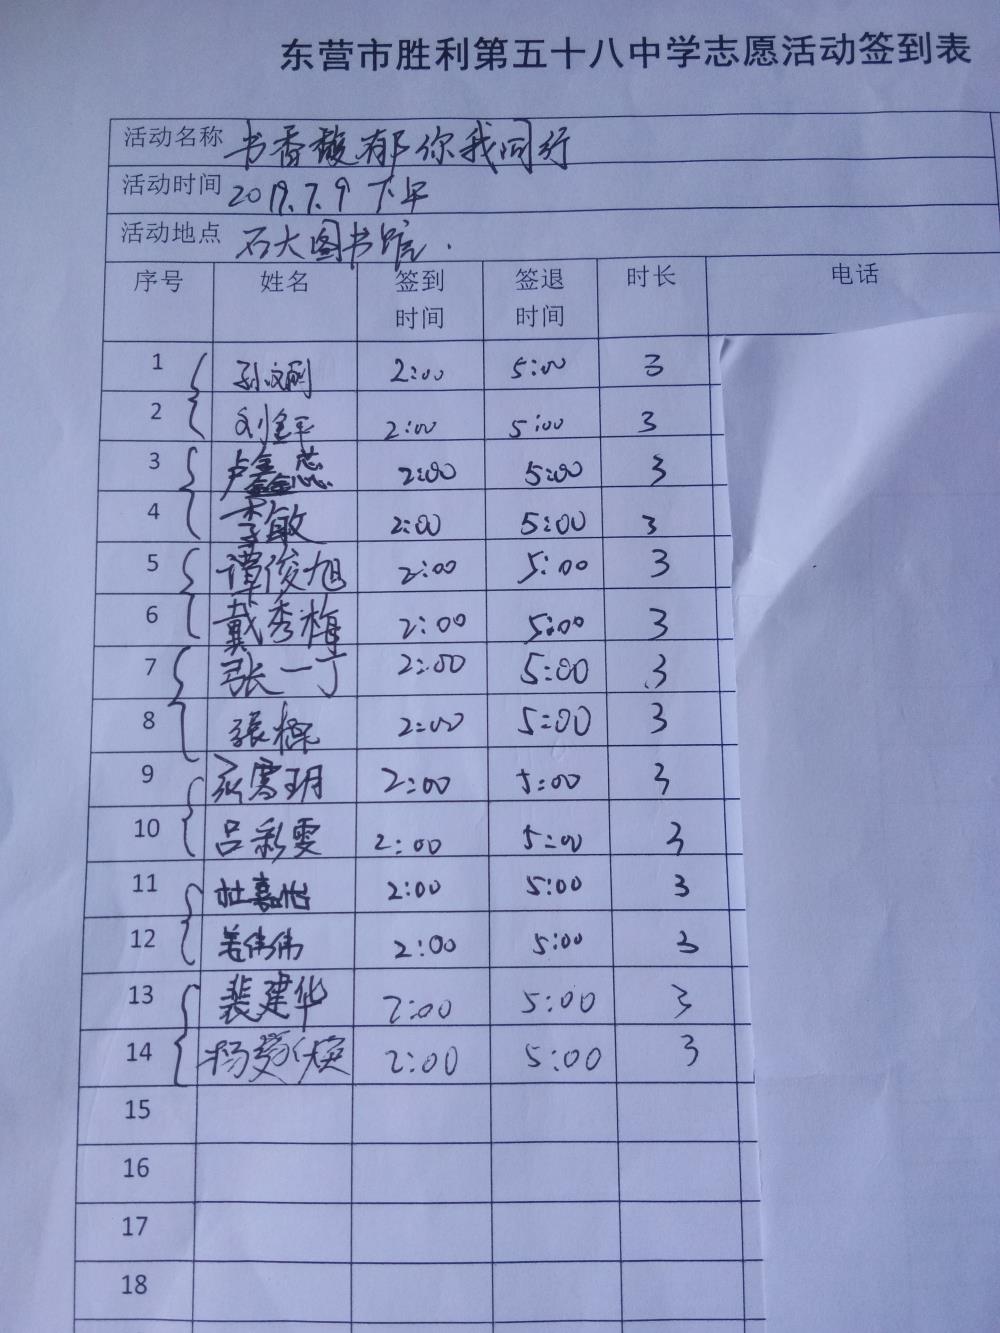 东营市胜利第五十八中学志愿活动签到表
活动名称 书香馥郁你我同行
活动时间 2019.7.9 下午
活动地点 石大图书馆.
序号 姓名 签到时间 签退时间 时长 电话
1 2:00 5:00 3
2 刘金平 2:00 5:00 3
3 卢鑫蕊 2:00 5:00 3
4 李敏 2:00 5:00 3
5 谭俊旭 2:00 5:00 3
6 戴秀梅 2:00 5:00 3
7 张一丁 2:00 5:00 3
8 張 2:00 5:00 3
9 雪玥 2:00 5:00 3
10 吕彩雯 2:00 5:00 3
11 杜嘉怡 2:00 5:00 3
12 姜伟伟 2:00 5:00 3
13 裴建华 2:00 5:00 3
14 杨 2:00 5:00 3
15
16
17
18